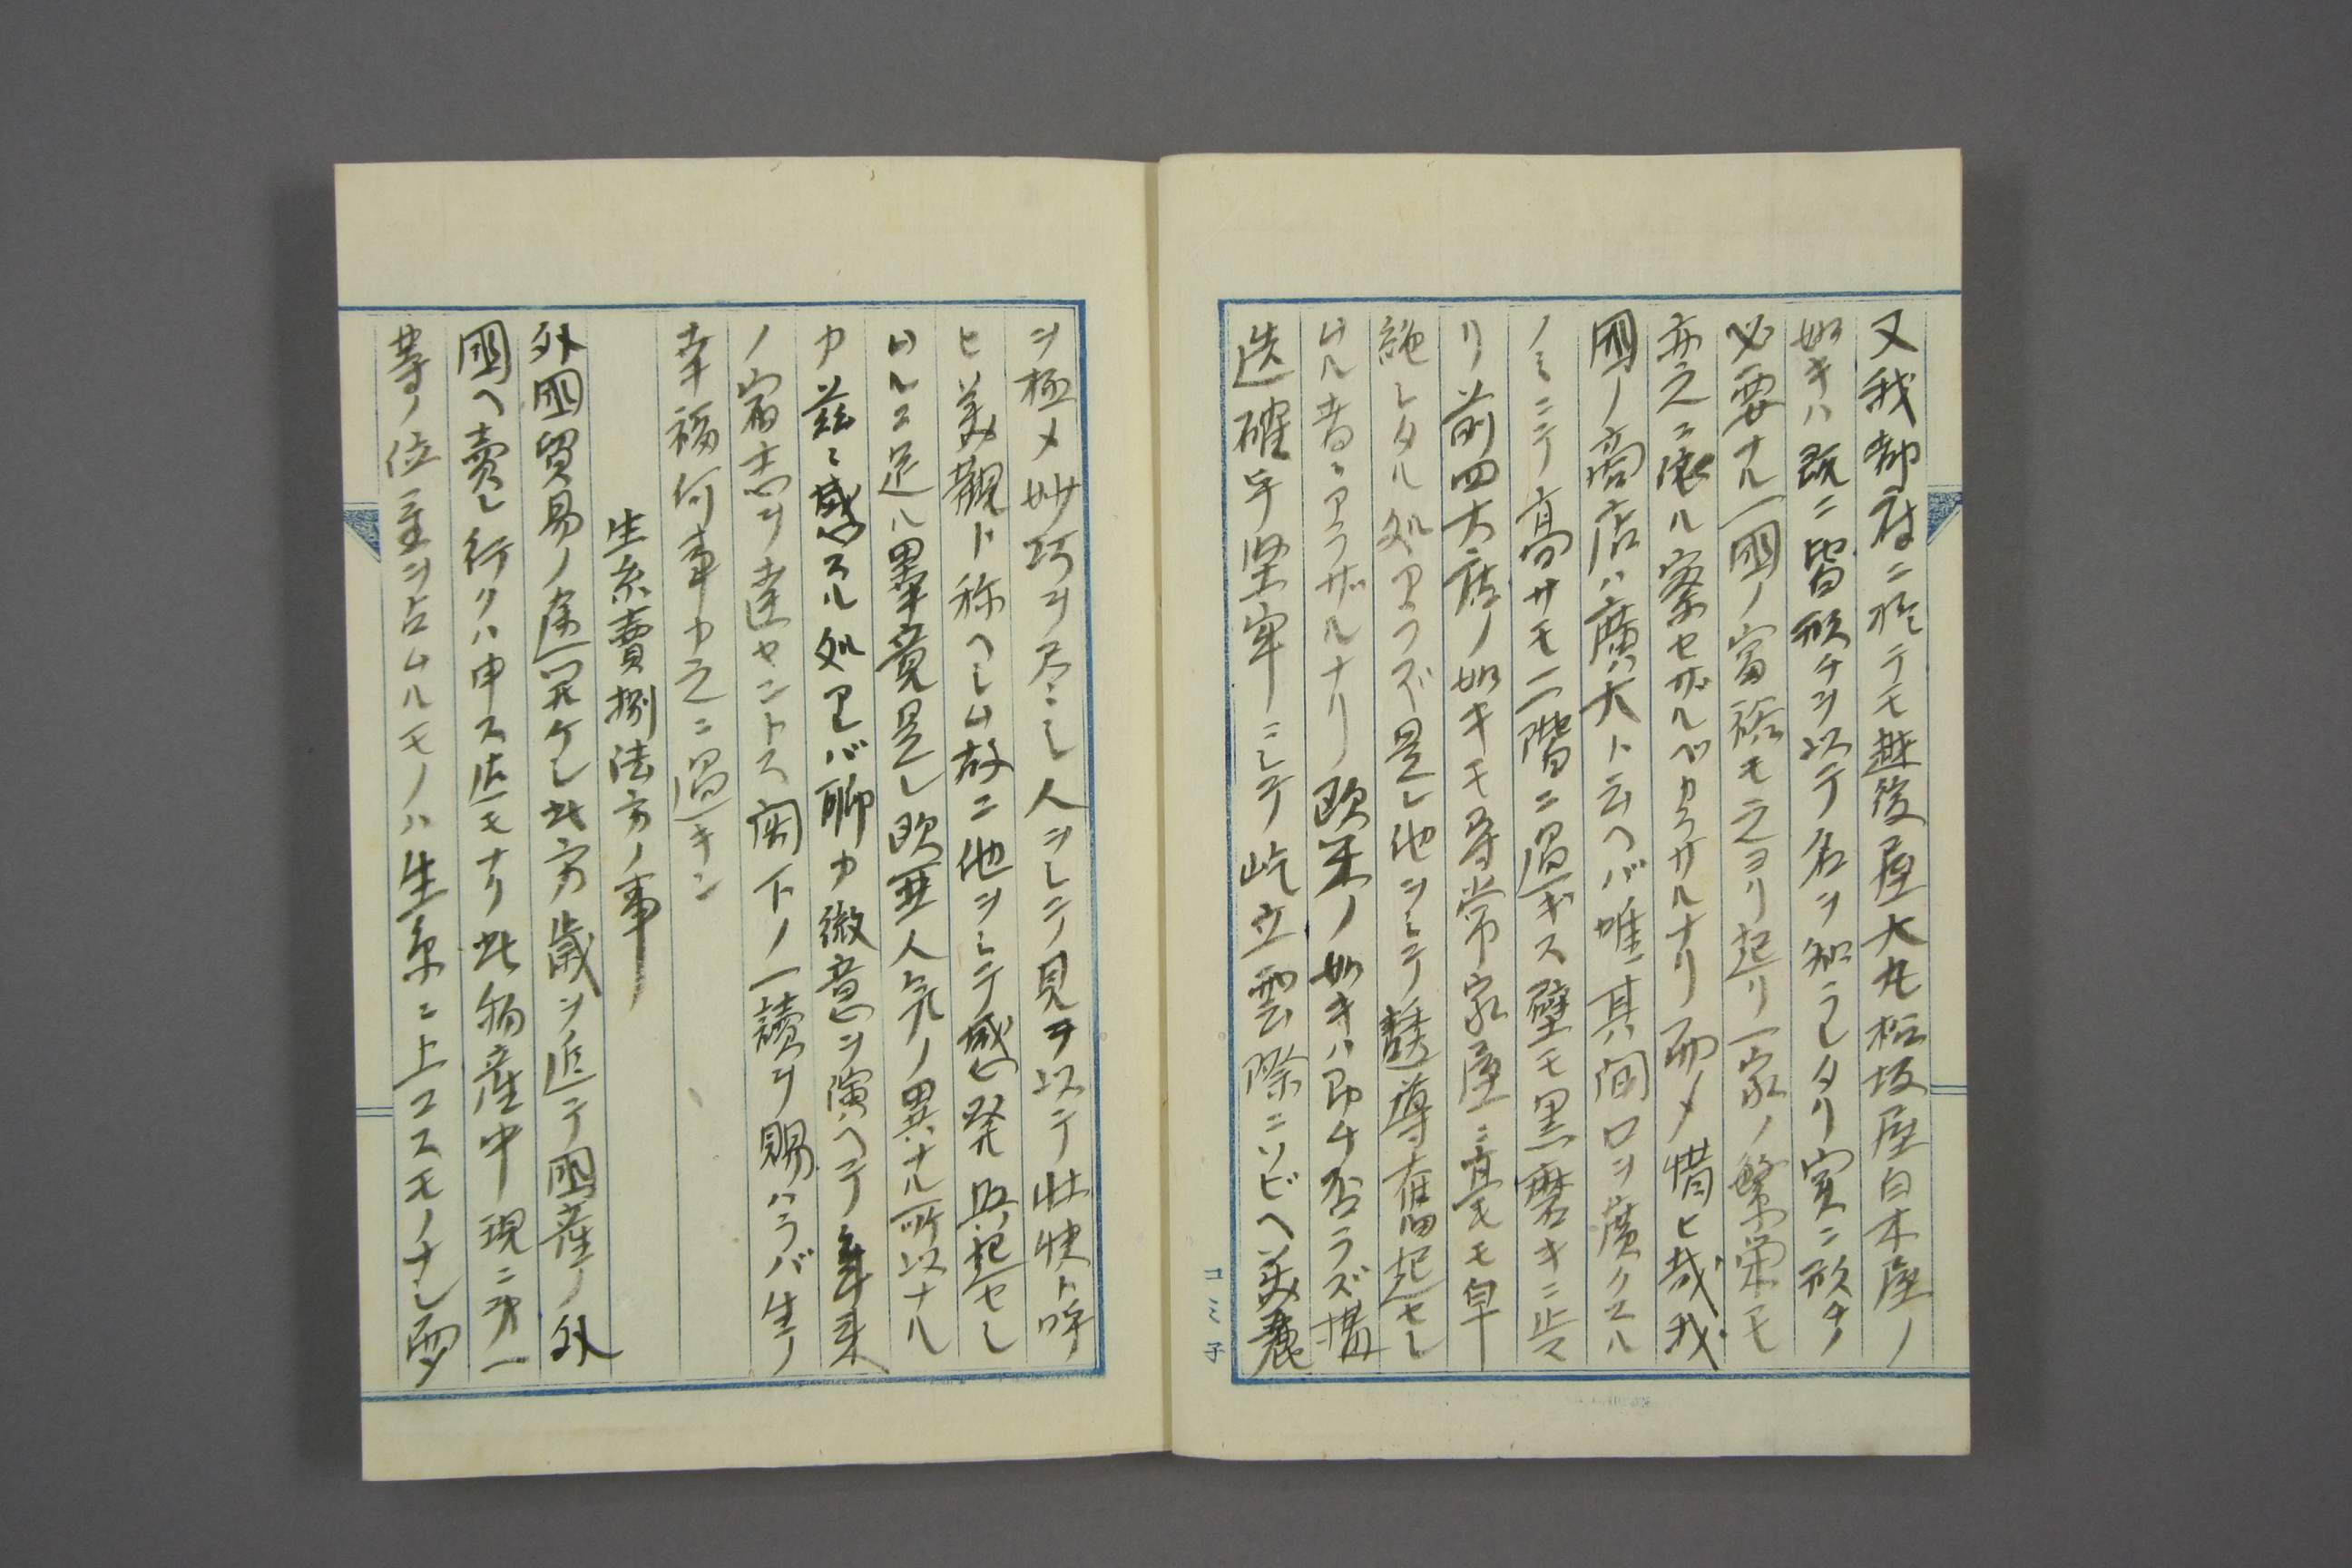 又我都府ニ於テモ越後屋大丸松坂屋白木屋ノ
如キハ既ニ皆形チヲ以テ名ヲ知ラレタリ実ニ形チノ
必要ナル一国ノ富裕モ之ヨリ起リ一家ノ繁栄モ
亦之ニ依ル察セザルベカラサルナリ而メ惜ヒ哉我
国ノ商店ハ廣大ト云ヘバ唯其間口ヲ廣クスル
ノミニテ高サモ二階ニ過ギス壁モ黒磨キニ止マ
リ前四大店ノ如キモ尋常家屋ニ毫モ卓
絶シタル処アラズ是レ他ヲシテ誘導奮起セシ
ムル者ニアラザルナリ欧米ノ如キハ即チ否ラズ構
造確乎堅牢ニシテ屹立雲際ニソビヘ美麗
ヲ極メ妙巧ヲ尽シ人ヲシテ見ヲ以テ壮快ト呼
ヒ美観ト称ヘシム故ニ他ヲシテ感発興起セシ
ムルニ足ル畢竟是レ欧亜人気ノ異ナル所以ナル
カ茲ニ感スル処アレバ聊カ微意ヲ演ヘテ年来
ノ宿志ヲ達セントス閣下ノ一讀ヲ賜ハラバ生ノ
幸福何事カ之ニ過キン
生糸賣捌法方ノ事
外国貿易ノ途開ケシ此方歳ヲ逐テ国産ノ外
国ヘ賣レ行クハ申ス迄モナク此物産中現ニ第一
等ノ位置ヲ占ムルモノハ生糸ニ上コスモノナシ而メ
コノミ子